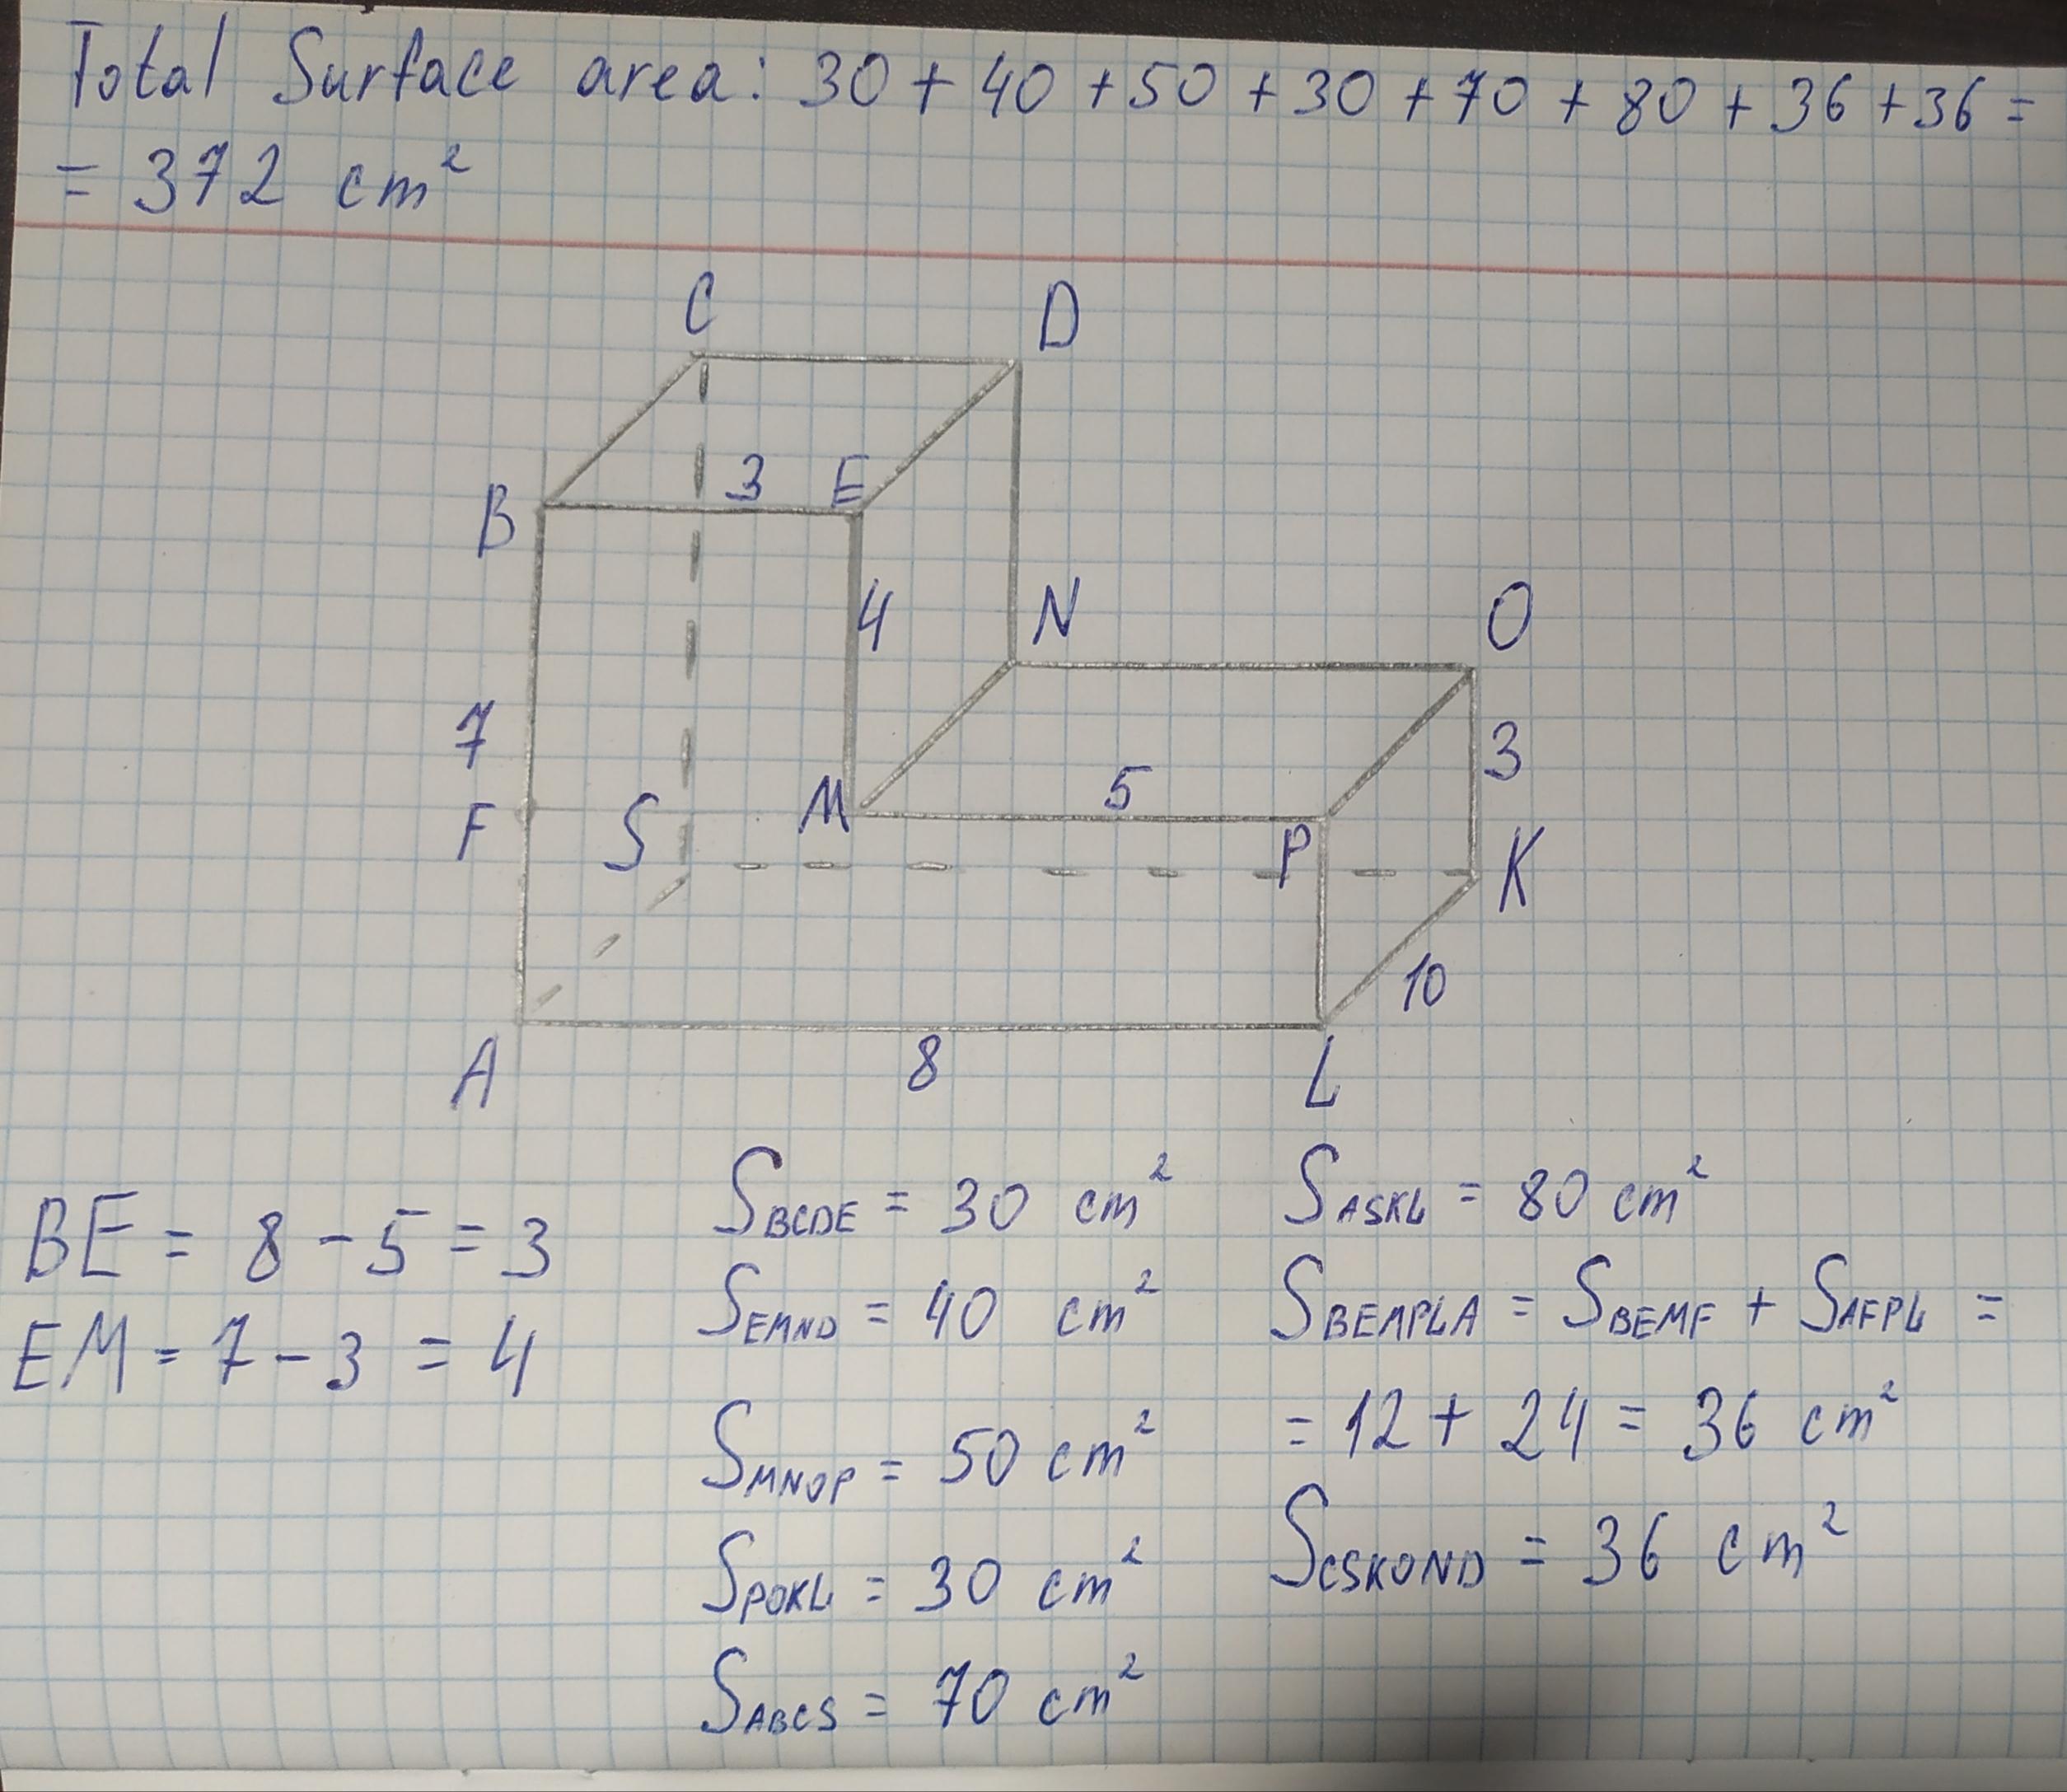 Total Surface area: 30 + 40 + 50 + 30 + 70 + 80 + 36 + 36 =
= 372 cm²
C D
B 3 E
4 N O
7 3
F S M 5 P K
10
A 8 L
BE = 8 - 5 = 3
EM = 7 - 3 = 4
S_BCDE = 30 cm²
S_EMND = 40 cm²
S_MNOP = 50 cm²
S_POKL = 30 cm²
S_ABCS = 70 cm²
S_ASKL = 80 cm²
S_BEMPLA = S_BEMF + S_AFPL =
= 12 + 24 = 36 cm²
S_CSKOND = 36 cm²